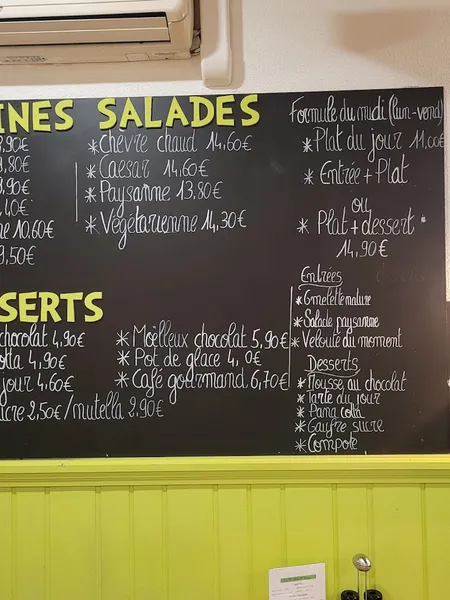 INES SALADES
9,90€
9,80€
9,90€
,40€
ne 10.60€
9,50€
*Chèvre chaud 14,60€
*Caesar 14.60€
*Paysanne 13.80€
*Végétarienne 14,30€
SERTS
chocolat 4,90€
otta 4,90€
jour 4,60€
ucre 2,50€/nutella 2.90€
*Moëlleux chocolat 5,90€
*Pot de glace 4, 0€
*Café gourmand. 6,70€
Formule du midi (lun-vend)
*Plat du jour 11,00€
*Entrée + Plat
ou
*Plat + dessert
14,90€
Entrées
*Omelette nature
*Salade paysanne
*Velouté du moment
Desserts
*Mousse au chocolat
*Tarte du jour
*Pana cotta
*Gaufre sucre
*Compote